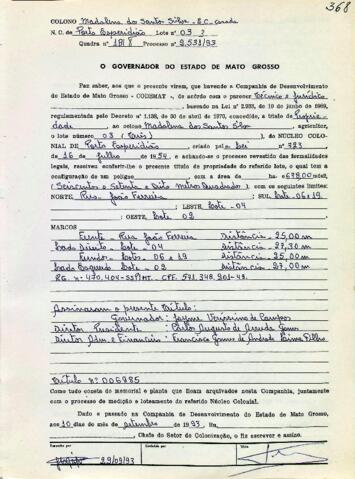 368
COLONO Madalena do Santos Silva - S.C. casada
N. C. de Porto Esperidião Lote nº 03
Quadra nº 181 B Processo nº 2.531/93
O GOVERNADOR DO ESTADO DE MATO GROSSO
Faz saber, aos que o presente virem, que havendo a Companhia de Desenvolvimento
do Estado de Mato Grosso - CODEMAT -, de acordo com o parecer Técnico e Jurídico
, baseado na Lei nº 2.933, de 10 de junho de 1969,
regulamentada pelo Decreto nº 1.138, de 30 de abril de 1970, concedido, a título de Proprie
dade, ao colono Madalena do Santos Silva, agricultor,
o lote número 03 (Três) do NÚCLEO COLO-
NIAL DE Porto Esperidião, criado pela Lei nº 723
de 16 de Julho de 1954, e achando-se o processo revestido das formalidades
legais, resolveu conferir-lhe o presente título de propriedade do referido lote, o qual tem a
configuração de um polígono com a área de ha:
(Seiscentos e Setenta e Oito Metros Quadrados), com os seguintes limites:
NORTE, Rua João Ferreira ; SUL, Lote 06 e 19
; LESTE, Lote - 04
; OESTE, Lote 02
MARCOS
Frente Rua João Ferreira Distância - 25,00m
Lado Direito - Lote - 04 Distância - 27,30m
Fundos - Lotes - 06 e 19 Distância - 25,00m
Lado Esquerdo - Lote - 02 Distância - 27,00m
RG. nº 470.404-SSP/MT. CPF. 571.348.901-49.
Assinaram o presente Título:
Governador: Jayme Veríssimo de Campos
Diretor Presidente : Carlos Augusto de Arruda Gomes
Diretor Adm. e Financeiro : Francisco Gomes de Andrade Lima Filho
Título Nº 006985
Como tudo consta do memorial e planta que ficam arquivados nesta Companhia, juntamente
com o processo de medição e loteamento do referido Núcleo Colonial.
Dado e passado na Companhia de Desenvolvimento do Estado de Mato Grosso,
aos 10 dias do mês de setembro de 1993. Eu,
, Chefe do Setor de Colonização, o fiz escrever e assino.
29/09/93
Visto